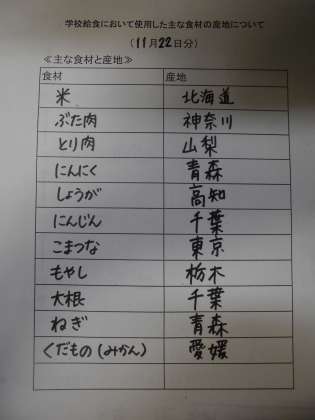 学校給食において使用した主な食材の産地について
(11月22日分)
≪主な食材と産地≫
食材 産地
米 北海道
ぶた肉 神奈川
とり肉 山梨
にんにく 青森
しょうが 高知
にんじん 千葉
こまつな 東京
もやし 栃木
大根 千葉
ねぎ 青森
くだもの(みかん) 愛媛